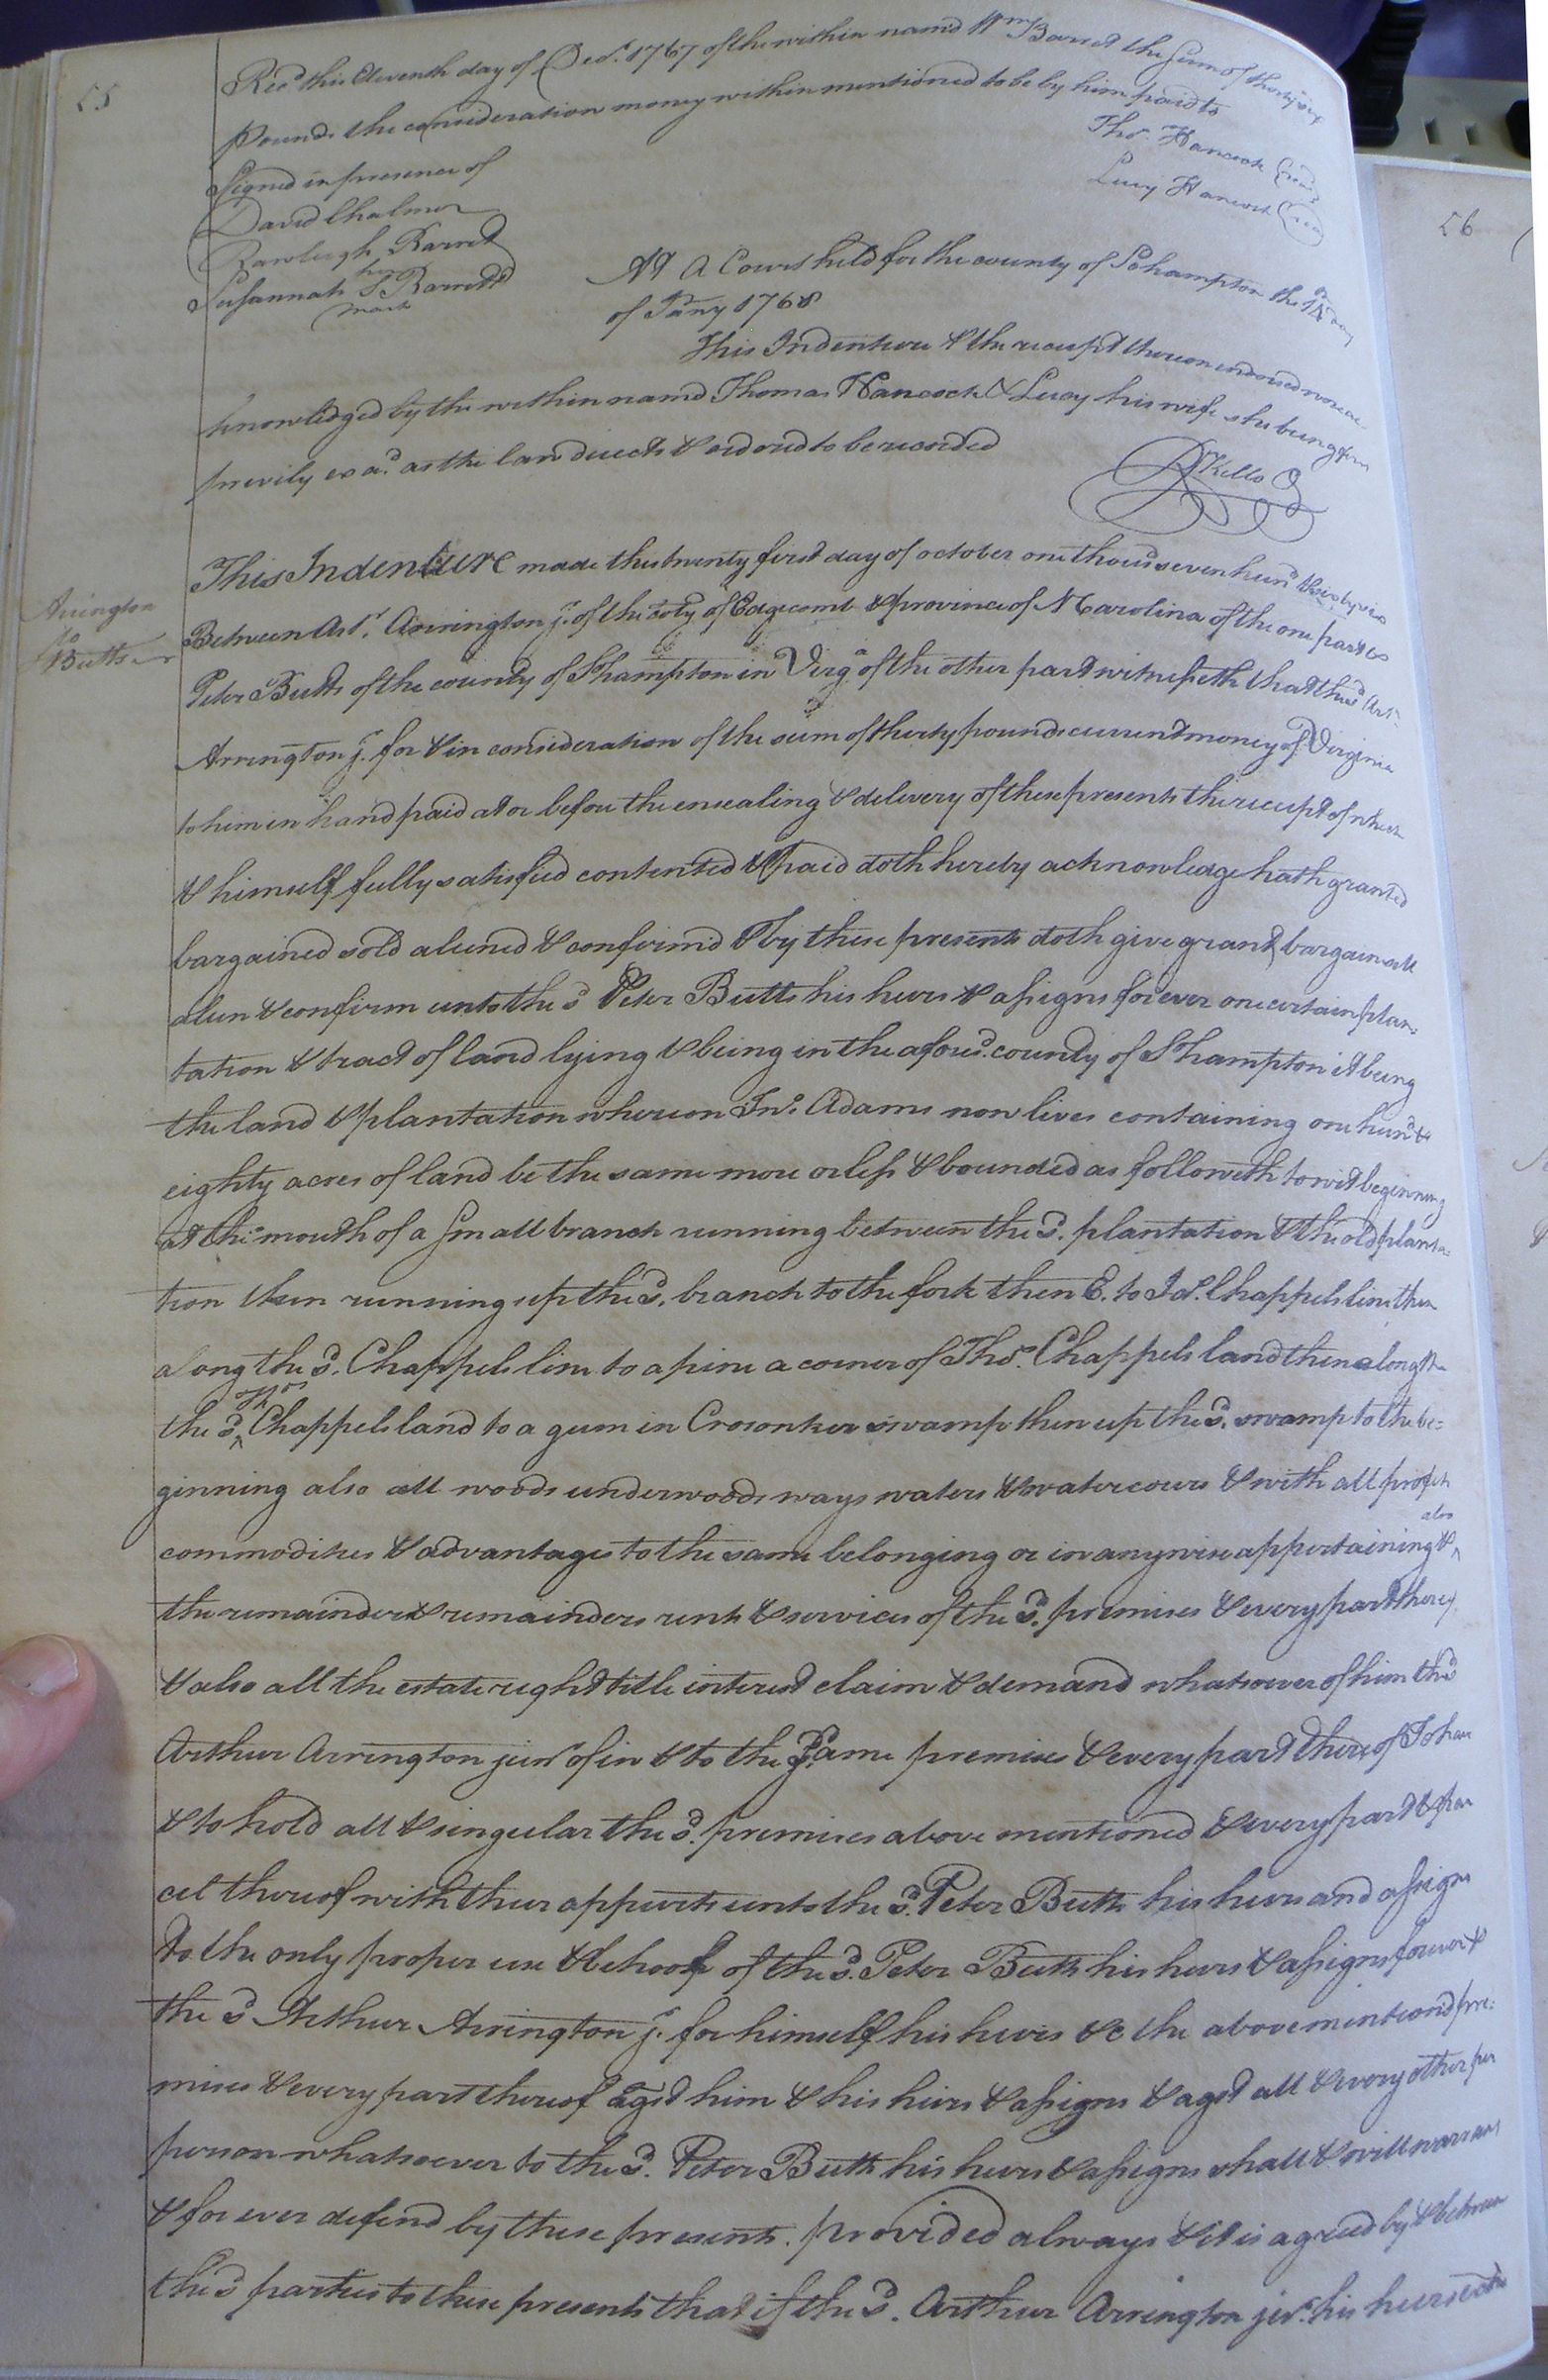 55
Recd this Eleventh day of Decr. 1767 of the within namd Wm Barret the Sum of thirty six
Pounds the consideration money within mentioned to be by him paid to
Signed in presence of
Thos. Hancock (seal)
Lucy Hancock (seal)
David Chalmer
Rawleigh Barret
her
Susannah S Barrett
mark
At A Court held for the county of Sohampton the 14th day
of Jany 1768
This Indenture & the receipt thereon endorsed were ac
knowledged by the within namd Thomas Hancock & Lucy his wife she being first
previly exad. as the law directs & ordred to be recorded
Rd Kello
56
Arrington
to
Butts
This Indenture made the twenty first day of october one thousd seven hund & sixty six
Between Artr. Arrington jr. of the coty of Edgecomb & province of N Carolina of the one part &
Peter Butts of the county of S'hampton in Virga of the other part witnesseth that the sd Artr.
Arrington jr. for & in consideration of the sum of thirty pounds current money of Virginia
to him in hand paid at or before the ensealing & delivery of these presents the receipt of which
& himself fully satisfied contented & paid doth hereby acknowledge hath granted
bargained sold aliened & confirmd & by these presents doth give grant bargain sell
alien & confirm unto the sd Peter Butts his heirs & assigns for ever one certain plan=
tation & tract of land lying & being in the aforesd. county of S'hampton it being
the land & plantation whereon Jno. Adams now lives containing one hund &
eighty acres of land be the same more or less & bounded as followeth to wit beginning
at the mouth of a small branch running between the sd. plantation & the old planta=
tion then running up the sd. branch to the fork then E. to Chappels line then
along the sd. Chappels line to a pine a corner of Thos. Chappels land then along the
the sd. ^ Thos Chappels land to a gum in Crosonker swamp then up the sd. swamp to the be=
ginning also all woods underwoods ways waters & watercours & with all profits
commodities & advantages to the same belonging or in anywise appertaining & ^ also
the remainder & remainders rents & services of the sd. premises & every part thereof
& also all the estate right title interest claim & demand whatsoever of him the sd
Arthur Arrington junr of in & to the same premises & every part thereof To have
& to hold all & singular the sd. premises above mentioned & every part & par
cel thereof with their appurts unto the sd. Peter Butts his heirs and assigns
to the only proper use & behoof of the sd. Peter Butts his heirs & assigns forever &
the sd Arthur Arrington jr. for himself his heirs &c the above mentiond pre=
mises & every part thereof agst him & his heirs & assigns & agst all & every other per
person whatsoever to the sd. Peter Butts his heirs & assigns shall & will warrant
& for ever defend by these presents. provided always & it is agreed by & between
the sd parties to these presents that if the sd. Arthur Arrington junr. his heirs